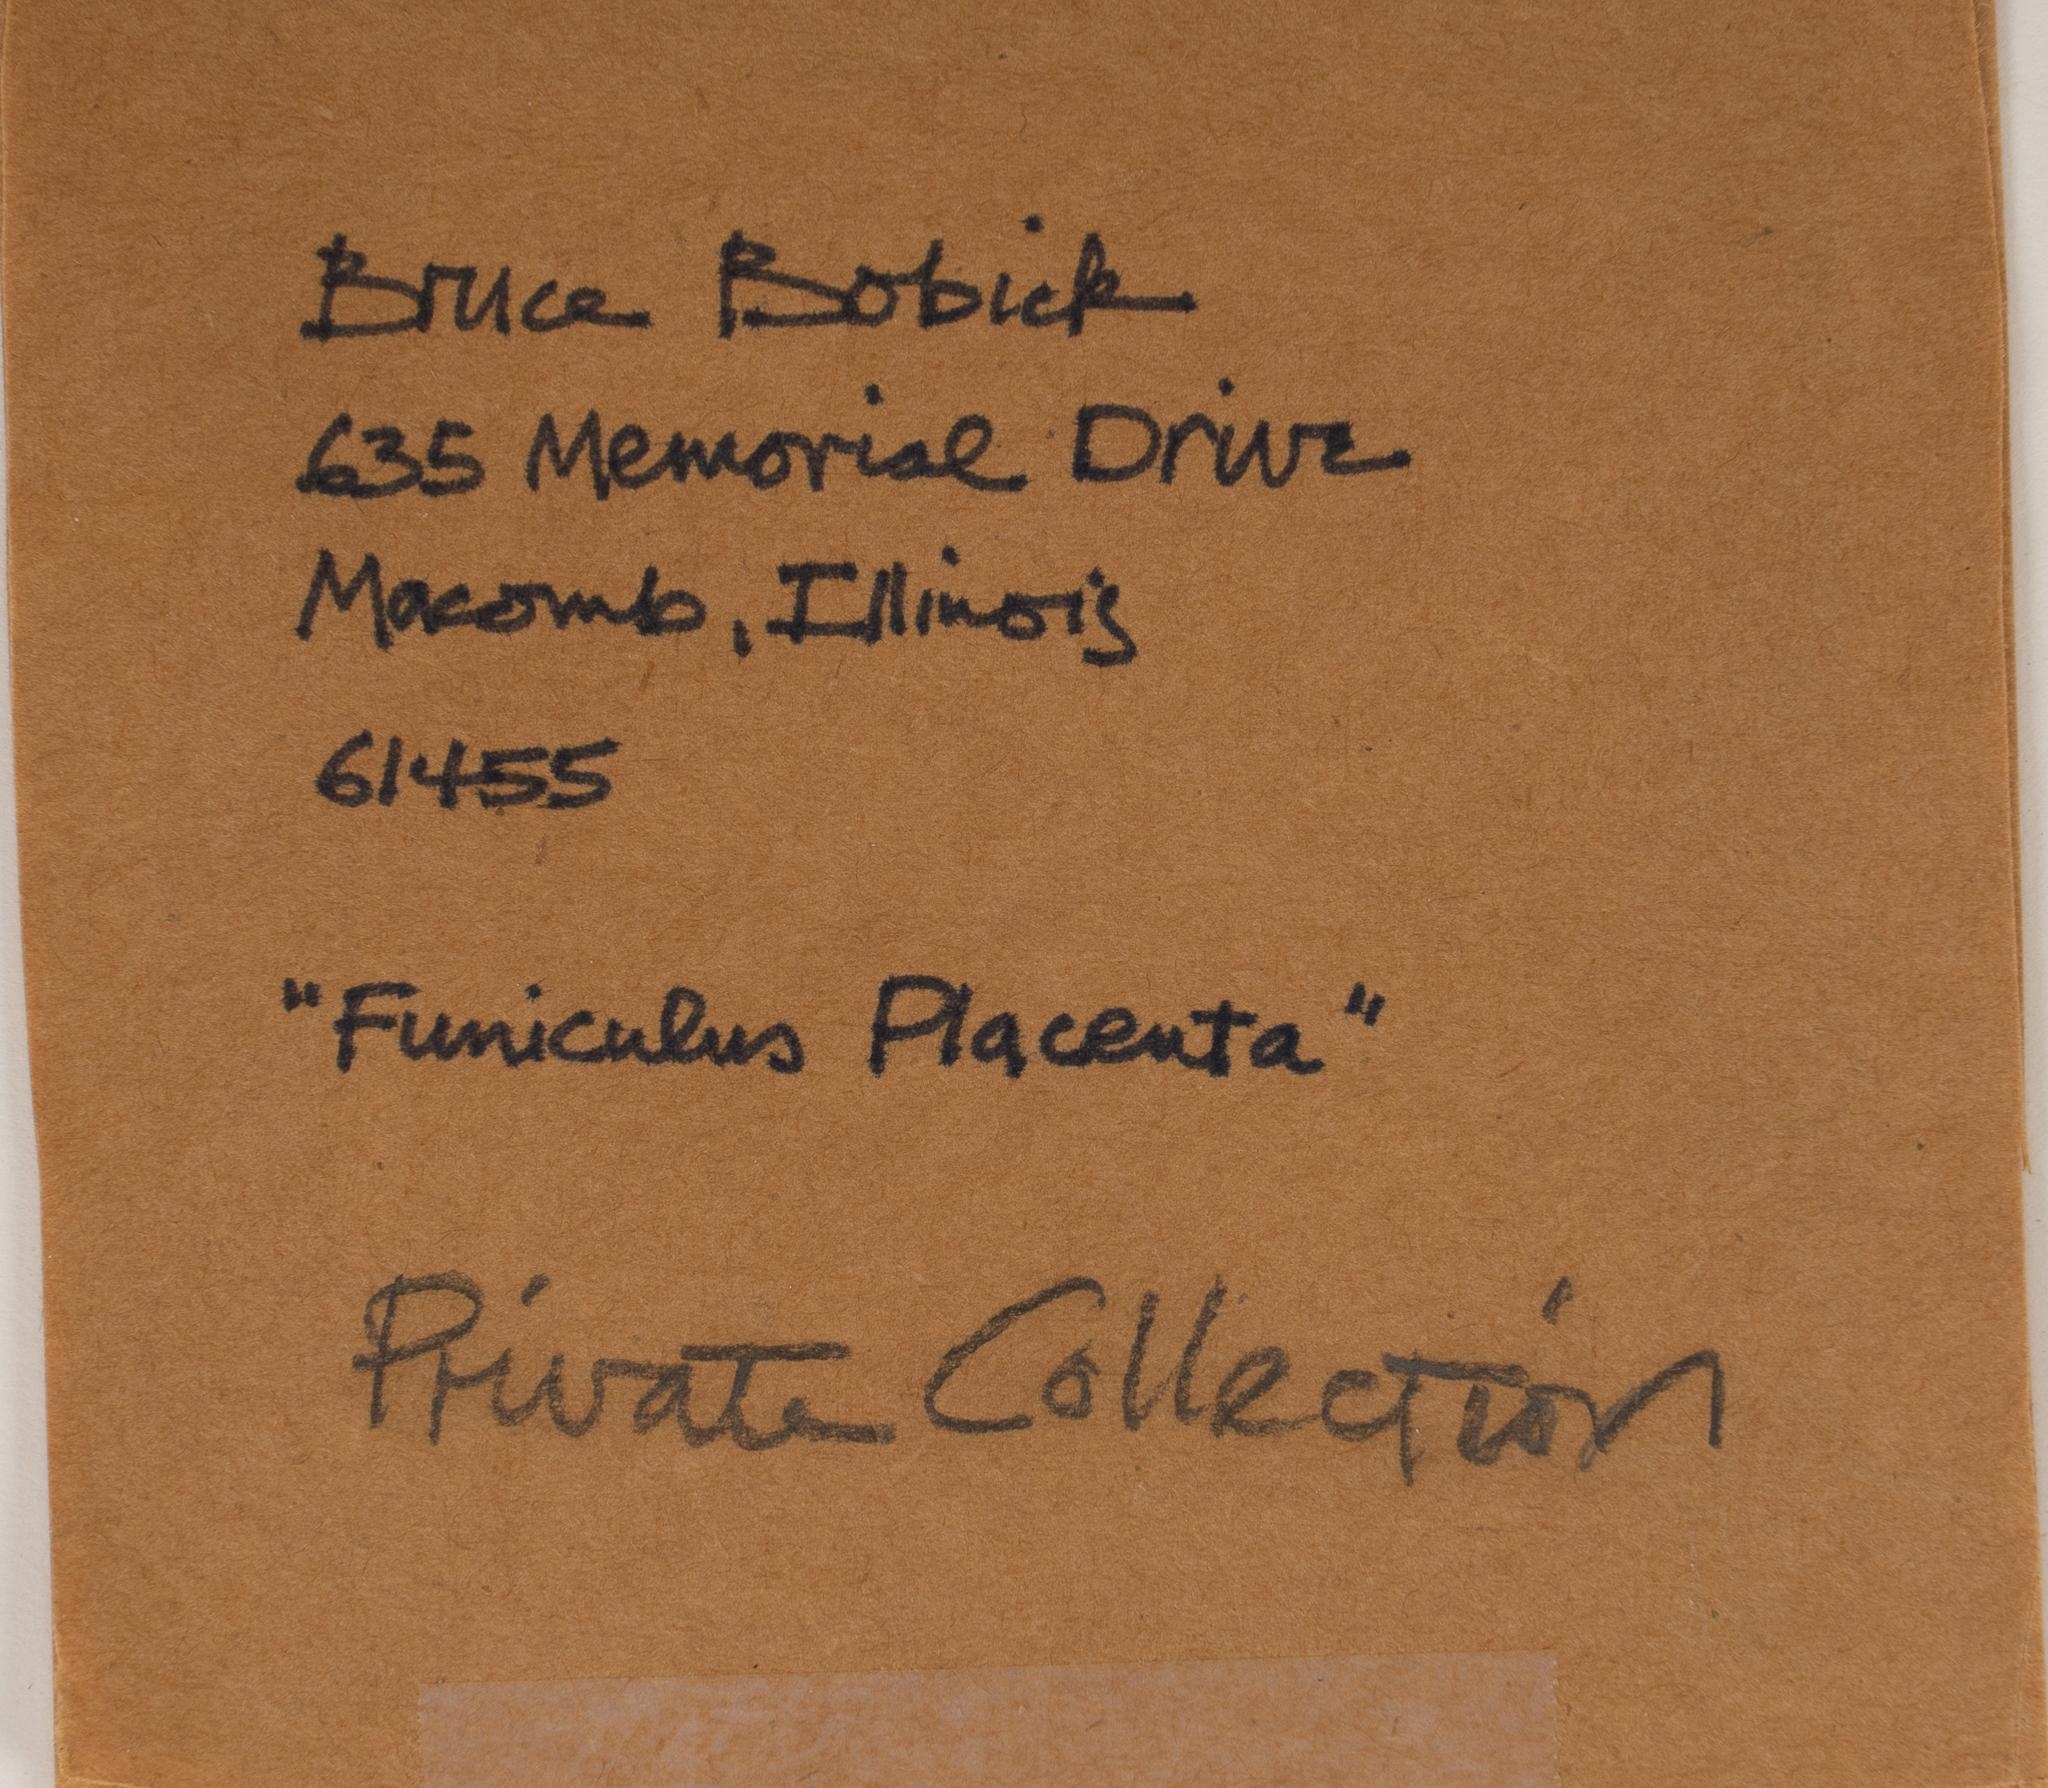 Bruce Bobick
635 Memorial Drive
Macomb, Illinois
61455
"Funiculus Placenta"
Private Collection